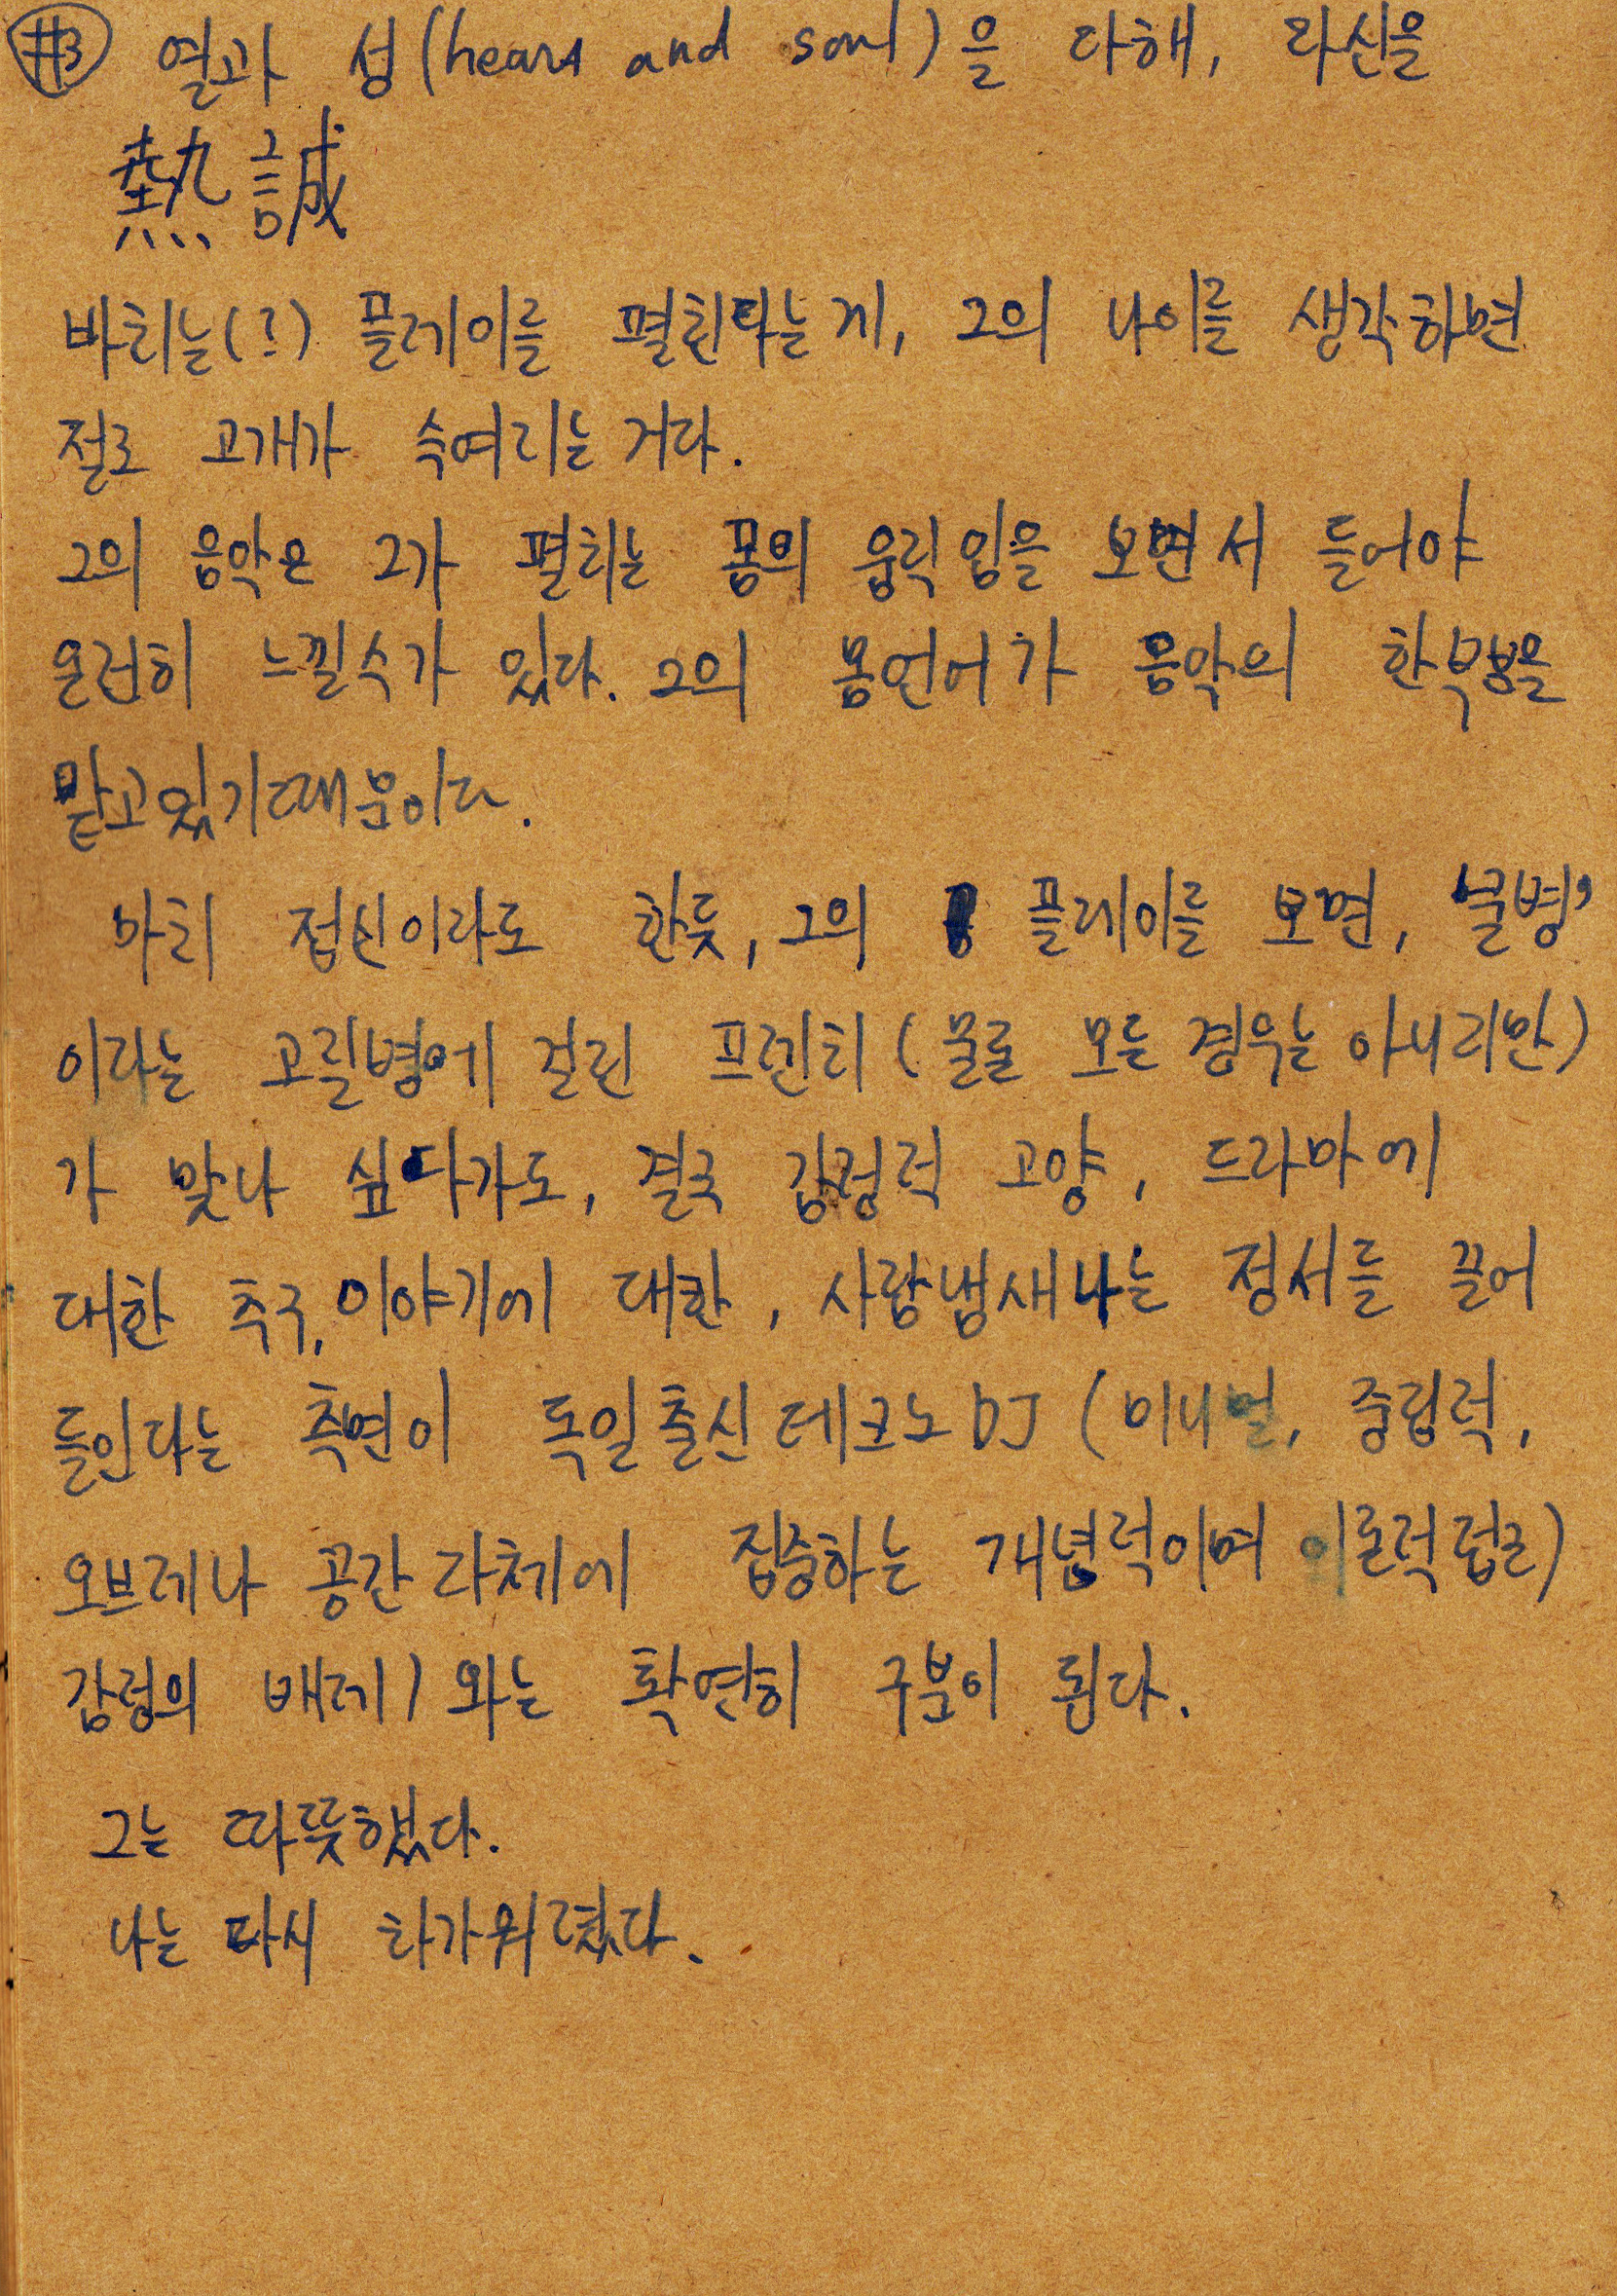 #3 열과 성(heart and soul)을 다해, 자신을
熱誠
바치는(?) 플레이를 펼친다는게, 그의 나이를 생각하면
절로 고개가 숙여지는 거다.
그의 음악은 그가 펼치는 몸의 움직임을 보면서 들어야
온전히 느낄수가 있다. 그의 몸언어가 음악의 한부분을
맡고있기때문이다.
마치 접신이라도 한듯, 그의 플레이를 보면, '불병'
이라는 고질병에 걸린 프렌치 (물론 모든 경우는 아니지만)
가 맞나 싶다가도, 결국 감정적 고양, 드라마에
대한 추구, 이야기에 대한, 사람냄새나는 정서를 끌어
들인다는 측면이 독일출신 테크노 DJ (미니멀, 중립적,
오브제나 공간 자체에 집중하는 개념적이며 이론적 접근)
감정의 배제) 와는 확연히 구분이 된다.
그는 따뜻했다.
나는 다시 차가워졌다.